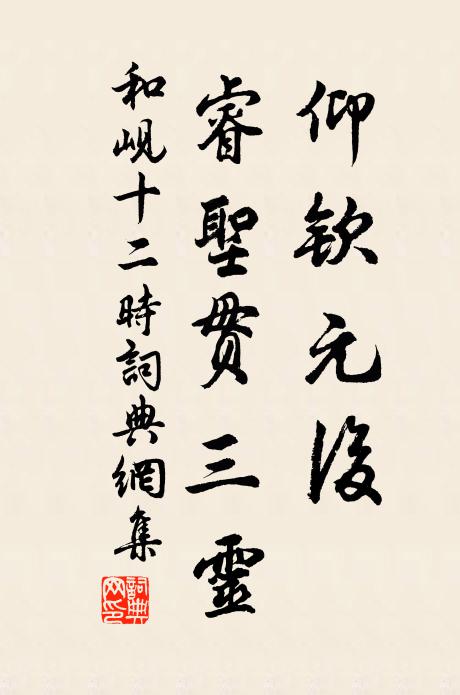 仰欽元後
睿聖貫三靈
和峴十二時詞典網集
詞典网印